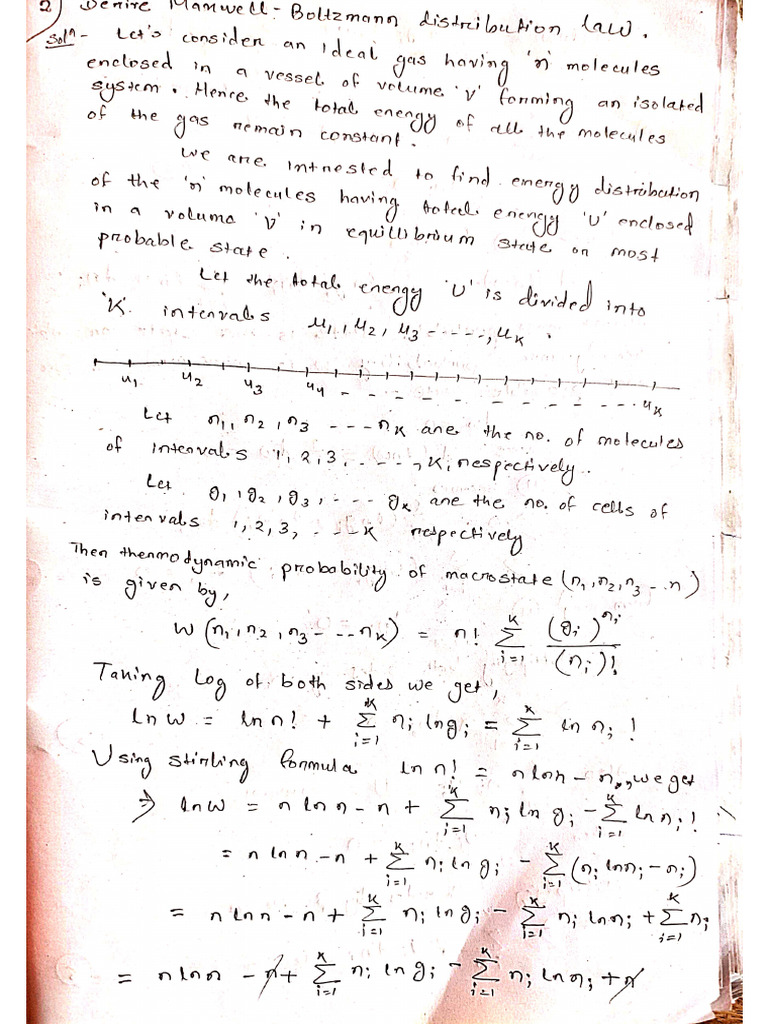 2) Derive Maxwell-Boltzmann distribution law.
Solⁿ- Let's consider an Ideal gas having 'n' molecules
enclosed in a vessel of volume 'v' forming an isolated
system. Hence the total energy of all the molecules
of the gas remain constant.
We are intrested to find energy distribution
of the 'n' molecules having total energy 'U' enclosed
in a volume 'v' in equilibrium state or most
probable state.
Let the total energy 'U' is divided into
'K' intervals u₁, u₂, u₃ -----, uₖ.
u₁ u₂ u₃ u₄ - - - - - - - - - ... uₖ
Let n₁, n₂, n₃ ---nₖ are the no. of molecules
of intervals 1, 2, 3, ....., K, respectively.
Let g₁, g₂, g₃, --- gₖ are the no. of cells of
intervals 1, 2, 3, ---K respectively
Then thermodynamic probability of macrostate (n₁, n₂, n₃ -- n)
is given by,
W (n₁, n₂, n₃ --- nₖ) = n! Σᵢ₌₁ᴷ (gᵢ)ⁿⁱ / (nᵢ)!
Taking Log of both sides we get,
ln W = ln n! + Σᵢ₌₁ᴷ nᵢ ln gᵢ = Σᵢ₌₁ᴷ ln nᵢ!
Using stirling formula ln n! = n ln n - n,, we get
⇒ ln W = n ln n - n + Σᵢ₌₁ᴷ nᵢ ln gᵢ - Σᵢ₌₁ᴷ ln nᵢ!
= n ln n - n + Σᵢ₌₁ᴷ nᵢ ln gᵢ - Σᵢ₌₁ᴷ (nᵢ ln nᵢ - nᵢ)
= n ln n - n + Σᵢ₌₁ᴷ nᵢ ln gᵢ - Σᵢ₌₁ᴷ nᵢ ln nᵢ + Σᵢ₌₁ᴷ nᵢ
= n ln n - n + Σᵢ₌₁ᴷ nᵢ ln gᵢ - Σᵢ₌₁ᴷ nᵢ ln nᵢ + n